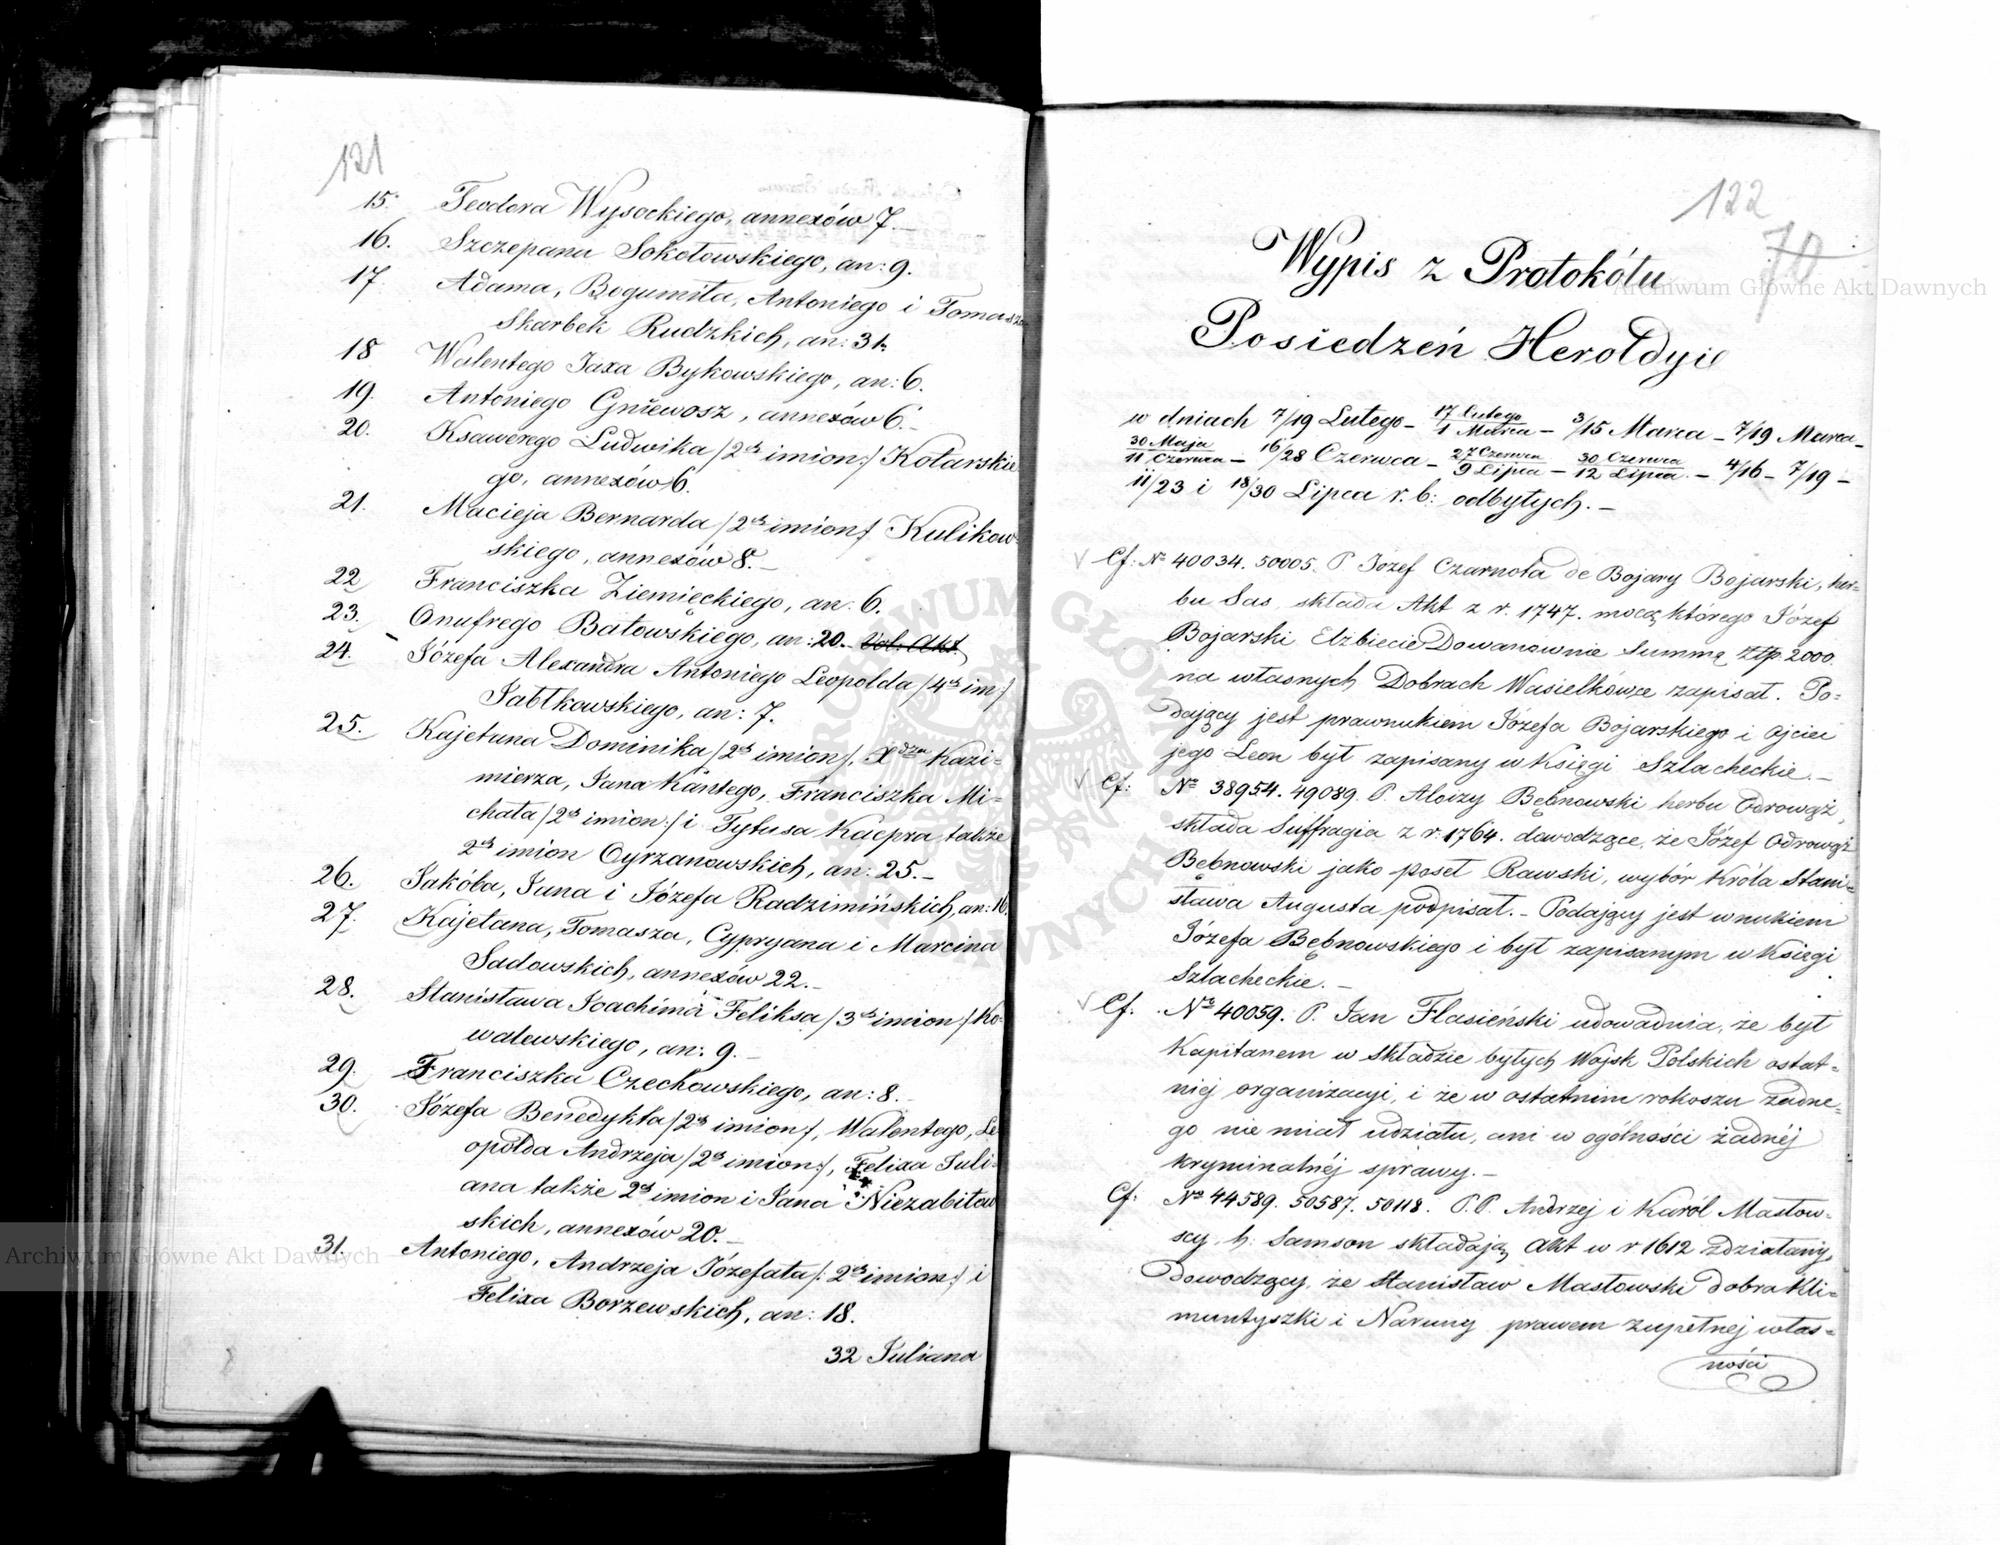 121
15. Teodora Wysockiego, annexów 7.—
16. Szczepana Sokołowskiego, an: 9.
17. Adama, Bogumiła, Antoniego i Tomasza
Skarbek Rudzkich, an: 31.
18 Walentego Jaxa Bykowskiego, an: 6.
19. Antoniego Gniewosz, annexów 6.—
20. Ksawerego Ludwika /2ch imion:/ Kotarskie
go, annexów 6.
21. Macieja Bernarda /2ch imion/ Kulikow-
skiego, annexów 8.—
22 Franciszka Ziemięckiego, an: 6.
23. Onufrego Batowskiego, an: 20. Vol: Akt.
24. Józefa Alexandra Antoniego Leopolda /4ch im:/
Jabłkowskiego, an: 7.
25. Kajetana Dominika /2ch imion/, Xdza Kazi-
mierza, Jana Kantego, Franciszka Mi-
chała /2ch imion:/ i Tytusa Kacpra także
2ch imion Cyrzanowskich, an: 25.—
26. Jakóba, Jana i Józefa Radzimińskich, an: 16.
27. Kajetana, Tomasza, Cypryana i Marcina
Sadowskich, annexów 22.—
28. Stanisława Joachima Feliksa /3ch imion/ Ko-
walewskiego, an: 9.—
29. Franciszka Czechowskiego, an: 8.—
30. Józefa Benedykta /2ch imion/, Walentego, Le
opolda Andrzeja /2ch imion:/, Felixa Juli-
ana także 2ch imion i Jana Niezabitow
skich, annexów 20.—
31. Antoniego, Andrzeja Józefata /: 2ch imion:/ i
Felixa Borzewskich, an: 18.
32 Juliana
122
70
Wypis z Protokółu
Posiedzeń Heroldyi
w dniach 7/19 Lutego — 17 Lutego/1 Marca — 3/15 Marca — 7/19 Marca —
30 Maja/11 Czerwca — 16/28 Czerwca — 27 Czerwca/9 Lipca — 30 Czerwca/12 Lipca — 4/16 — 7/19 —
11/23 i 18/30 Lipca r. b: odbytych.—
Cf: No 40034. 50005. P. Józef Czarnota de Bojary Bojarski, her-
bu Sas, składa Akt z r. 1747. mocą którego Józef
Bojarski Elżbiecie Dowanownie Summę Złp. 2000.
na własnych Dobrach Wasielkówce zapisał. Po-
dający jest prawnukiem Józefa Bojarskiego i ojciec
jego Leon był zapisany w Księgi Szlacheckie.—
Cf: No 38954. 49089. P. Aloizy Bębnowski herbu Odrowąż,
składa Suffragia z r. 1764. dowodzące, że Józef Odrowąż
Bębnowski jako poseł Rawski, wybór Króla Stani-
sława Augusta podpisał.— Podający jest wnukiem
Józefa Bębnowskiego i był zapisanym w Księgi
Szlacheckie.—
Cf. No 40059. P. Jan Flasieński udowadnia, że był
Kapitanem w składzie byłych Wojsk Polskich ostat-
niej organizacyi, i że w ostatnim rokoszu żadne-
go nie miał udziału, ani w ogólności żadnéj
kryminalnéj sprawy.—
Cf: No 44589. 50587. 50118. P.P. Andrzej i Karól Masłow-
scy, h: Samson składają Akt w r 1612 zdziałany,
Dowodzący, że Stanisław Masłowski dobra Kli-
muntyszki i Naruny prawem zupełnej włas-
ności
Archiwum Główne Akt Dawnych
Archiwum Główne Akt Dawnych
ARCHIWUM GŁÓWNE AKT DAWNYCH